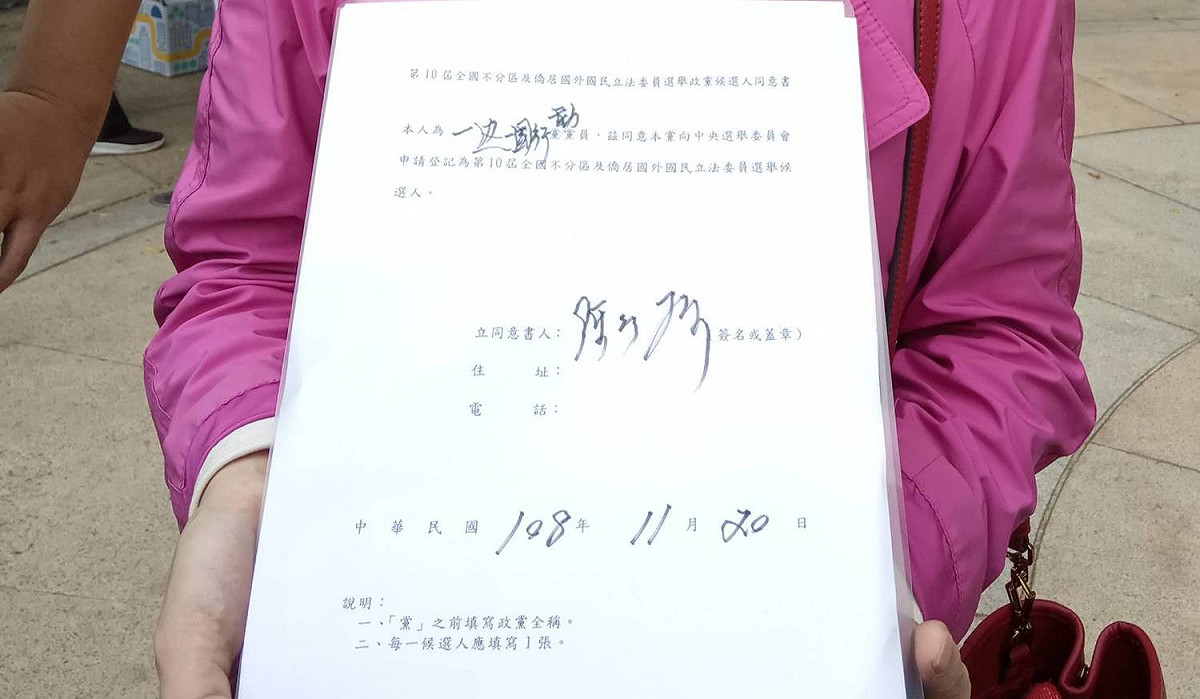 第10屆全國不分區及僑居國外國民立法委員選舉政黨候選人同意書
本人為 一边一國行動 黨黨員，茲同意本黨向中央選舉委員會
申請登記為第10屆全國不分區及僑居國外國民立法委員選舉候
選人。
立同意書人： 陳水扁 簽名或蓋章）
住　　址：
電　　話：
中華民國 108 年 11 月 20 日
說明：
一、「黨」之前填寫政黨全稱。
二、每一候選人應填寫1張。